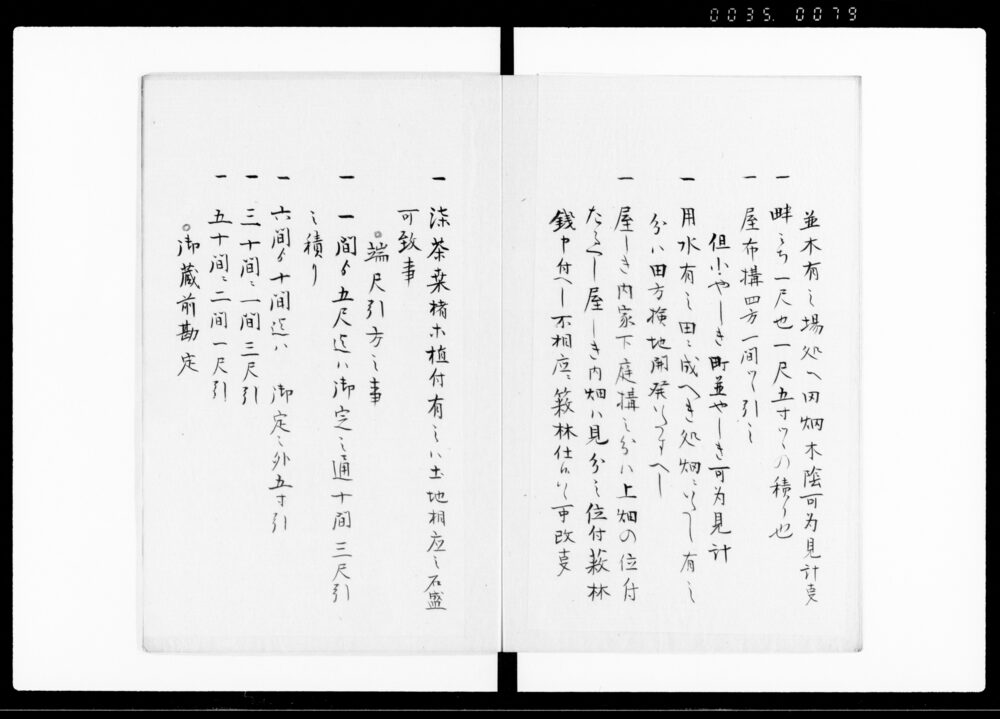 0035. 0079
並木有之場処ハ田畑木陰可為見計事
一 畔之ち一尺也一尺五寸ツヽの積り也
一 屋布搆四方一間ツヽ引之
但小やしき町並やしき可為見計
一 用水有之田ニ成へき処畑ニいたし有之
分ハ田方検地開発いたすへし
一 屋しき内家下庭搆之分ハ上畑の位付
たるへし屋しき内畑ハ見分之位付薮林
銭申付へし不相応ニ薮林仕候ハヽ可改事
一 漆茶桑楮木植付有之ハ土地相応之石盛
可致事
○端尺引方之事
一 一間ゟ五尺迄ハ御定之通十間三尺引
之積り
一 六間ゟ十間迄ハ 御定之外五寸引
一 三十間ニ一間三尺引
一 五十間ニ二間一尺引
○御蔵前勘定